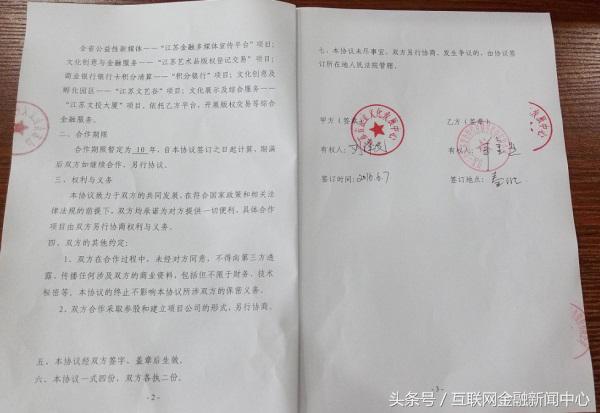 全省公益性新媒体——“江苏金融多媒体宣传平台”项目；
文化创意与金融服务——“江苏艺术品版权登记交易”项目；
商业银行银行卡积分清算——“积分银行”项目；文化创意及
孵化园区——“江苏文艺谷”项目；文化展示及综合服务——
“江苏文投大厦”项目，依托乙方平台，开展版权交易等综合
金融服务。
二、合作期限
合作期限暂定为 10 年，自本协议签订之日起计算，期满
后双方如继续合作，另行协议。
三、权利与义务
本协议致力于双方的共同发展，在符合国家政策和相关法
律法规的前提下，双方均承诺为对方提供一切便利，具体合作
项目由双方另行协商权利与义务。
四、双方的其他约定：
1、双方在合作过程中，未经对方同意，不得向第三方透
露、传播任何涉及双方的商业资料，包括但不限于财务、技术
秘密等。本协议的终止不影响本协议所涉双方的保密义务。
2、双方合作采取参股和建立项目公司的形式，另行协商。
五、本协议经双方签字、盖章后生效。
六、本协议一式四份，双方各执二份。
- 2 -
七、本协议未尽事宜，双方另行协商。发生争议的，由协议签
订所在地人民法院管辖。
甲方（签章） 乙方（签章）
有权人： 有权人：
签订时间：2016.6.7 签订地点：
- 3 -
头条号/互联网金融新闻中心